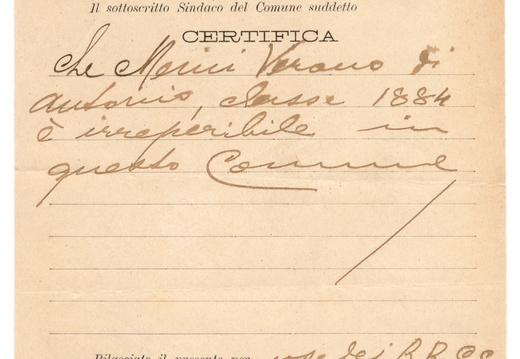 Il sottoscritto Sindaco del Comune suddetto
CERTIFICA
che Menui Verano di
Antonio, classe 1884
è irreperibile in
questo Comune
Rilasciato il presente per uso dei RR CC